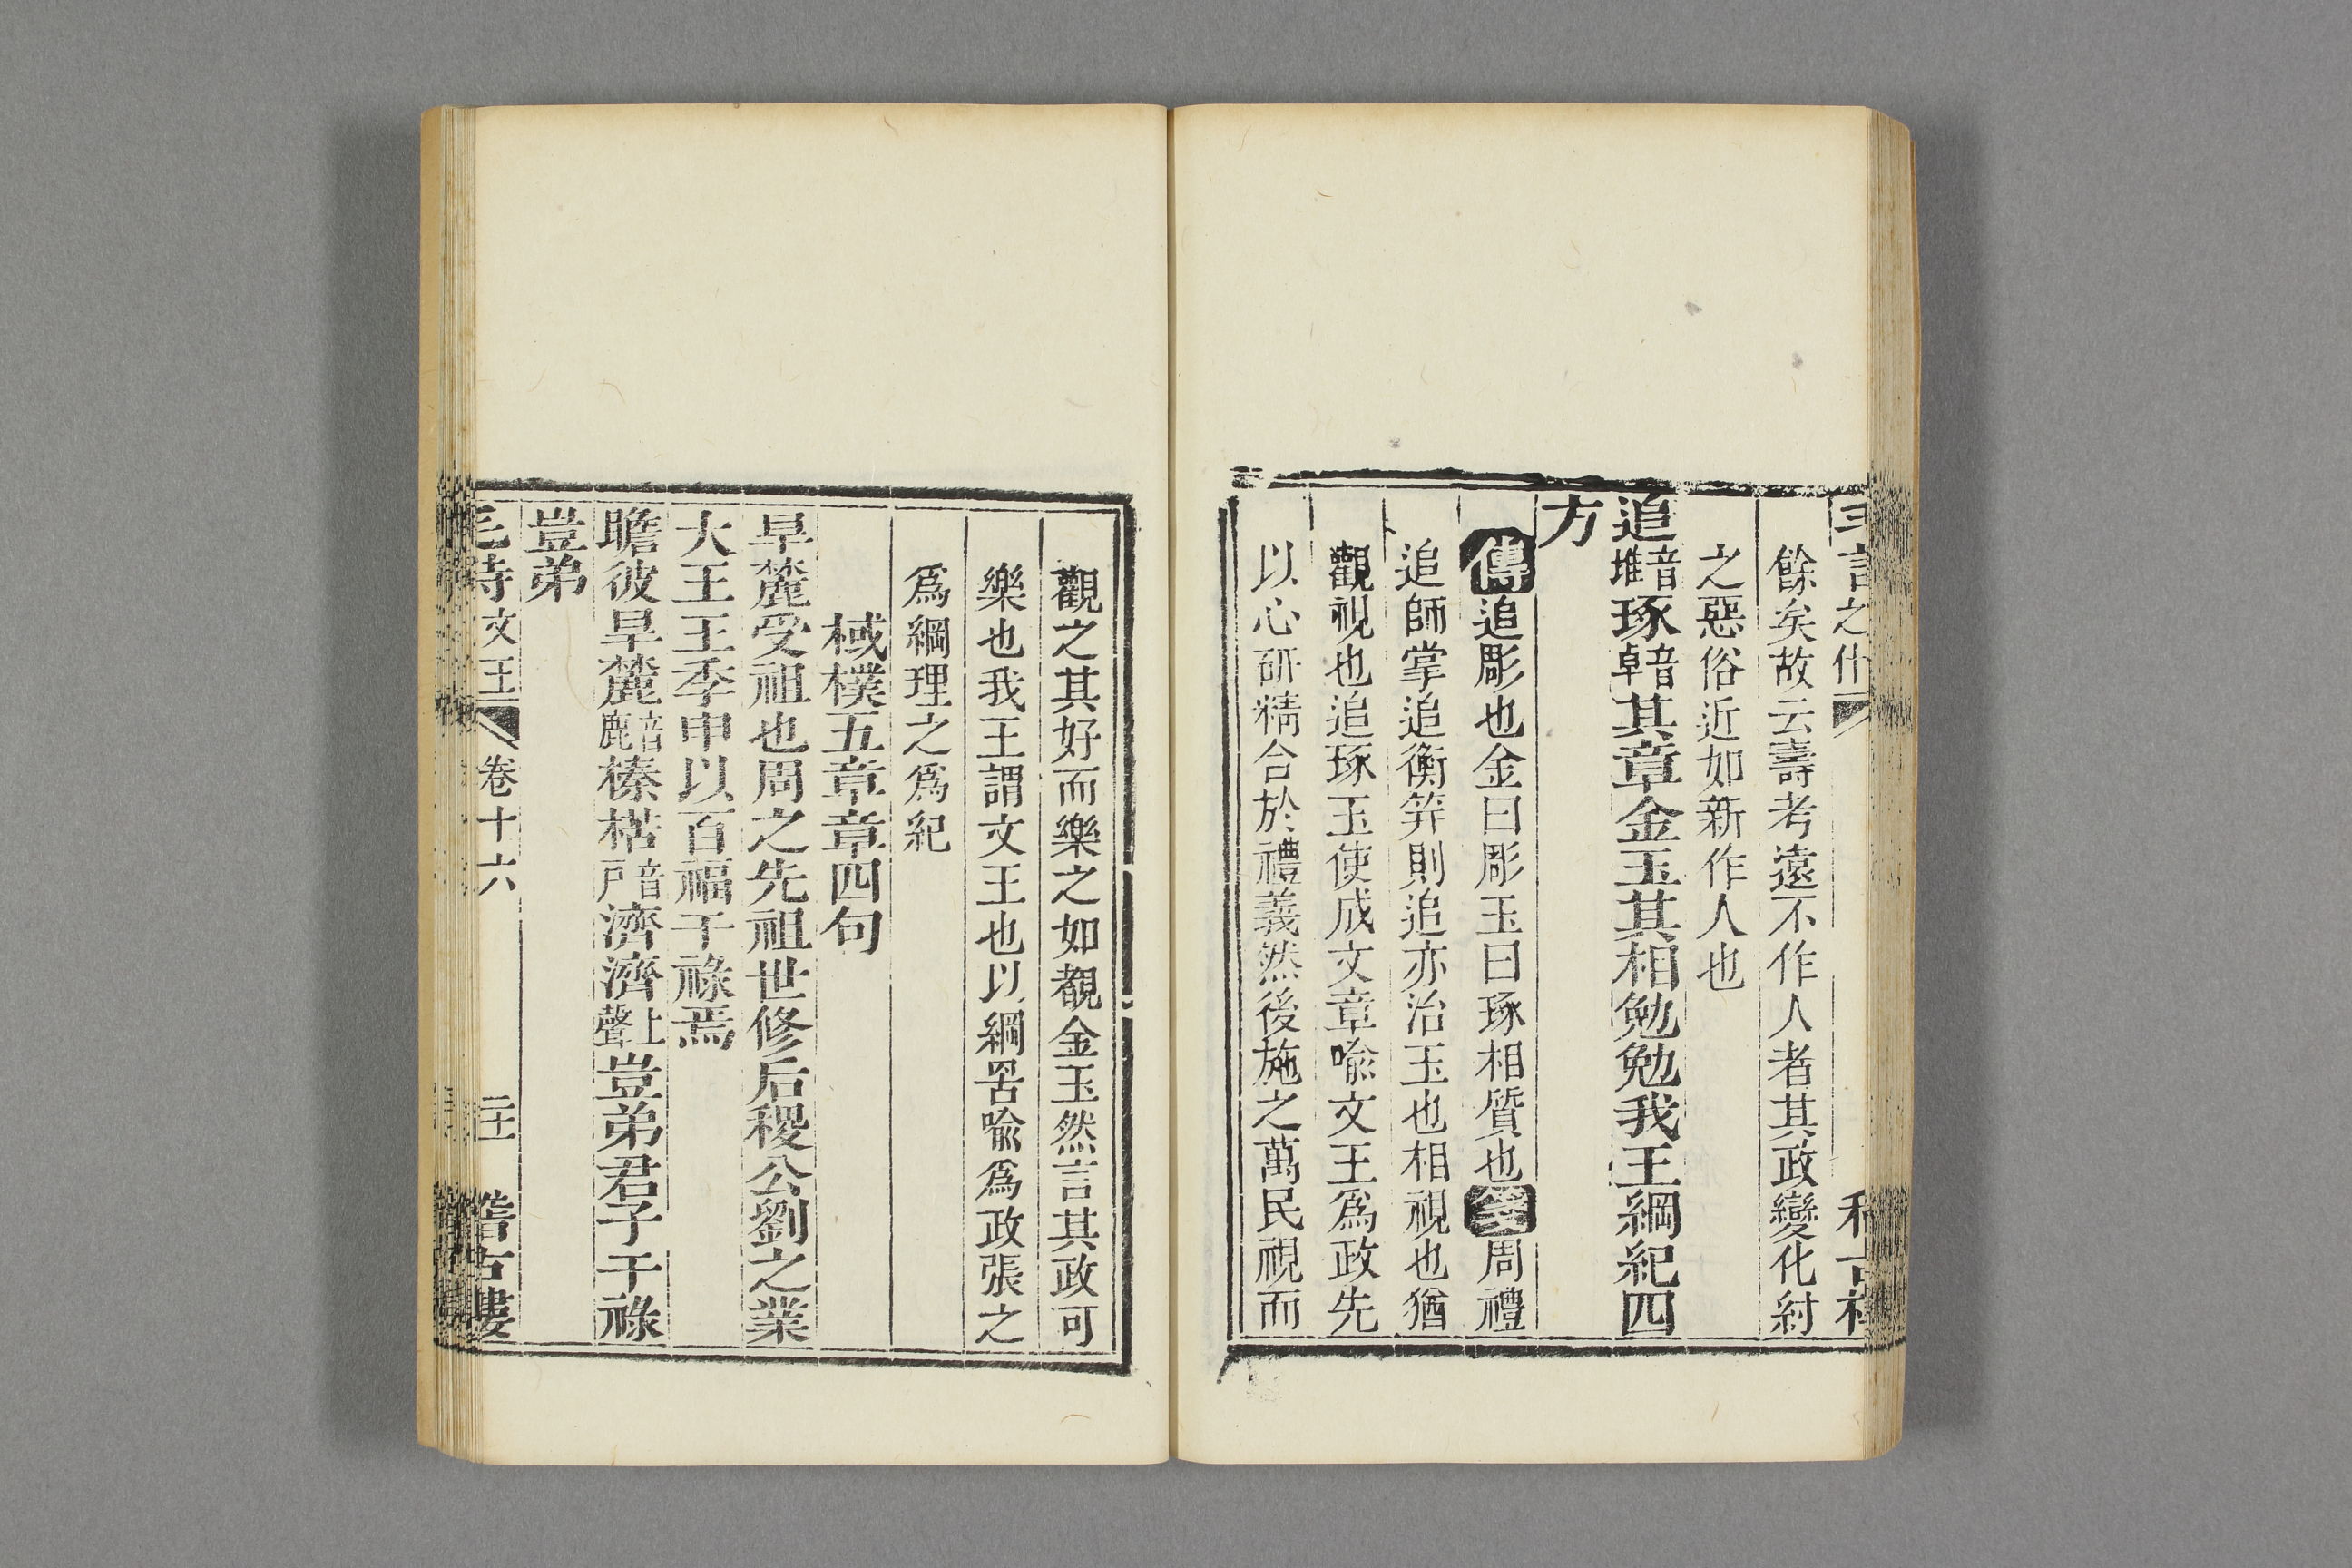 餘矣故云壽考遠不作人者其政變化紂
之惡俗近如新作人也
追音堆琢音卓其章金玉其相勉勉我王綱紀四
方
傳追彫也金曰彫玉曰琢相質也箋周禮
追師掌追衡笄則追亦治玉也相視也猶
觀視也追琢玉使成文章喻文王為政先
以心研精合於禮義然後施之萬民視而
觀之其好而樂之如覩金玉然言其政可
樂也我王謂文王也以綱罟喻為政張之
為綱理之為紀
棫樸五章章四句
旱麓受祖也周之先祖世修后稷公劉之業
大王王季申以百福干祿焉
瞻彼旱麓音鹿榛楛音戶濟濟上聲豈弟君子干祿
豈弟
毛詩文王 卷十六 二十一 稽古樓